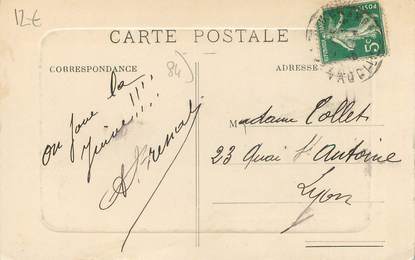 12 €
CARTE POSTALE
CORRESPONDANCE
ADRESSE
84)
on joue la
5c
POSTES
VAUCL
Madame Collet
23 Quai St Antoine
Lyon